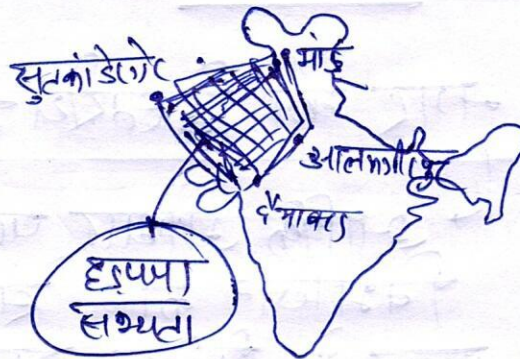 सुतकांडेगोर
मांडु
आलमगीरपुर
दैमाबाद
हड़प्पा
सभ्यता